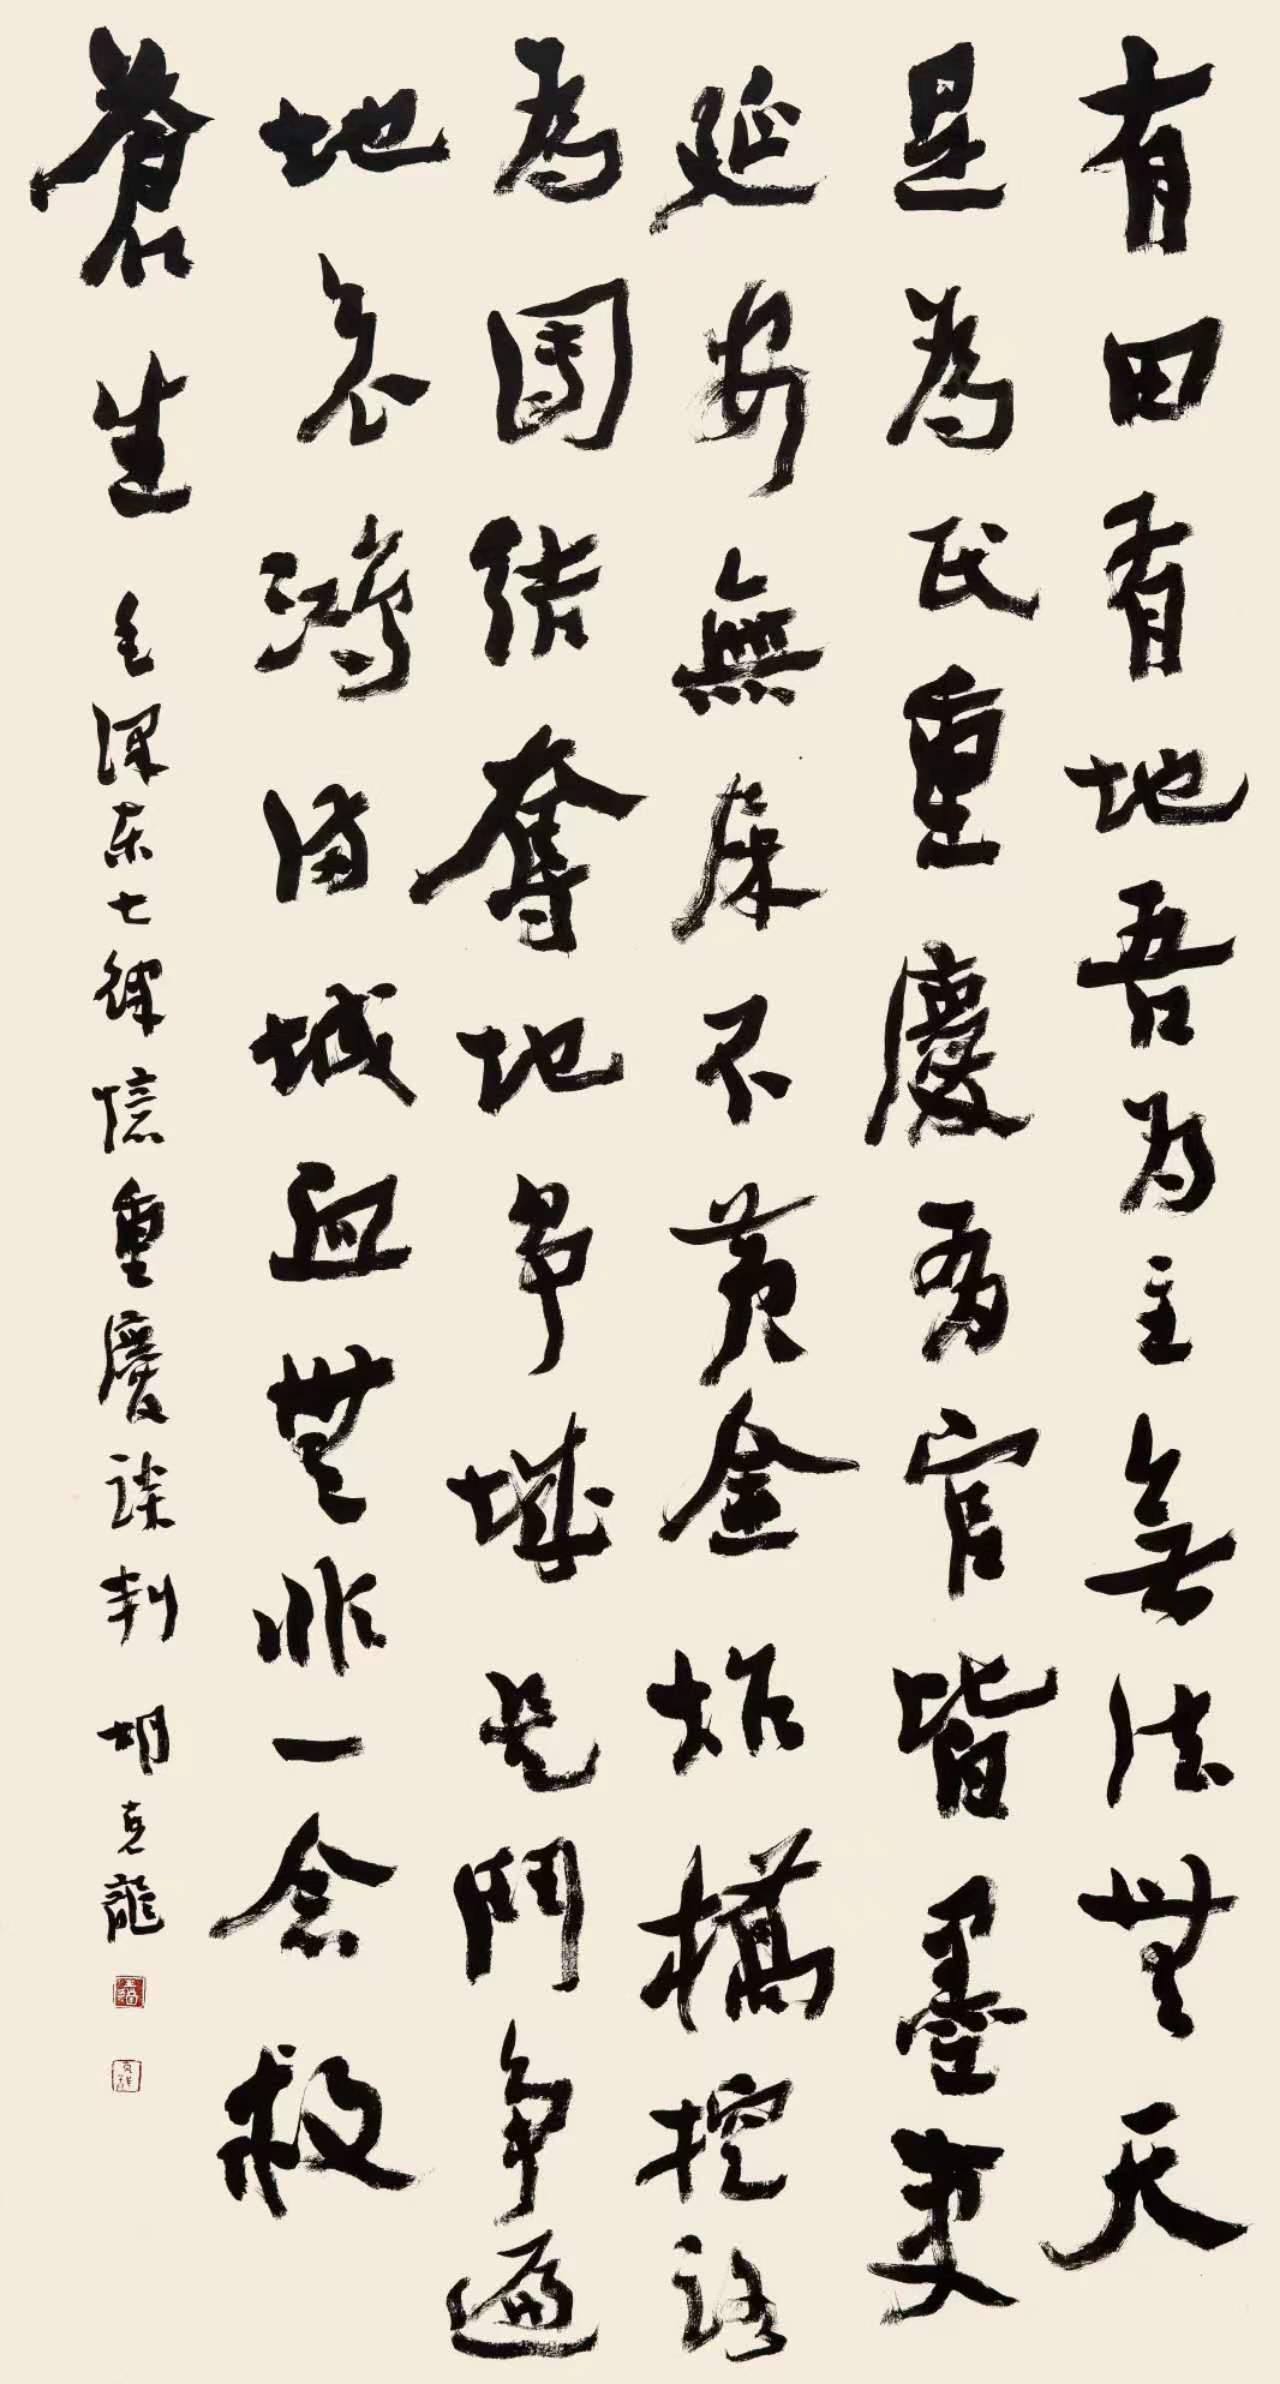 有田有地吾为主無法無天
是為民重慶有官皆墨吏
延安無屎不黄金炸橋挖路
為團结奪地争城是鬥争遍
地哀鴻满城血無非一念救
蒼生 毛澤东七律憶重慶談判 胡克龍